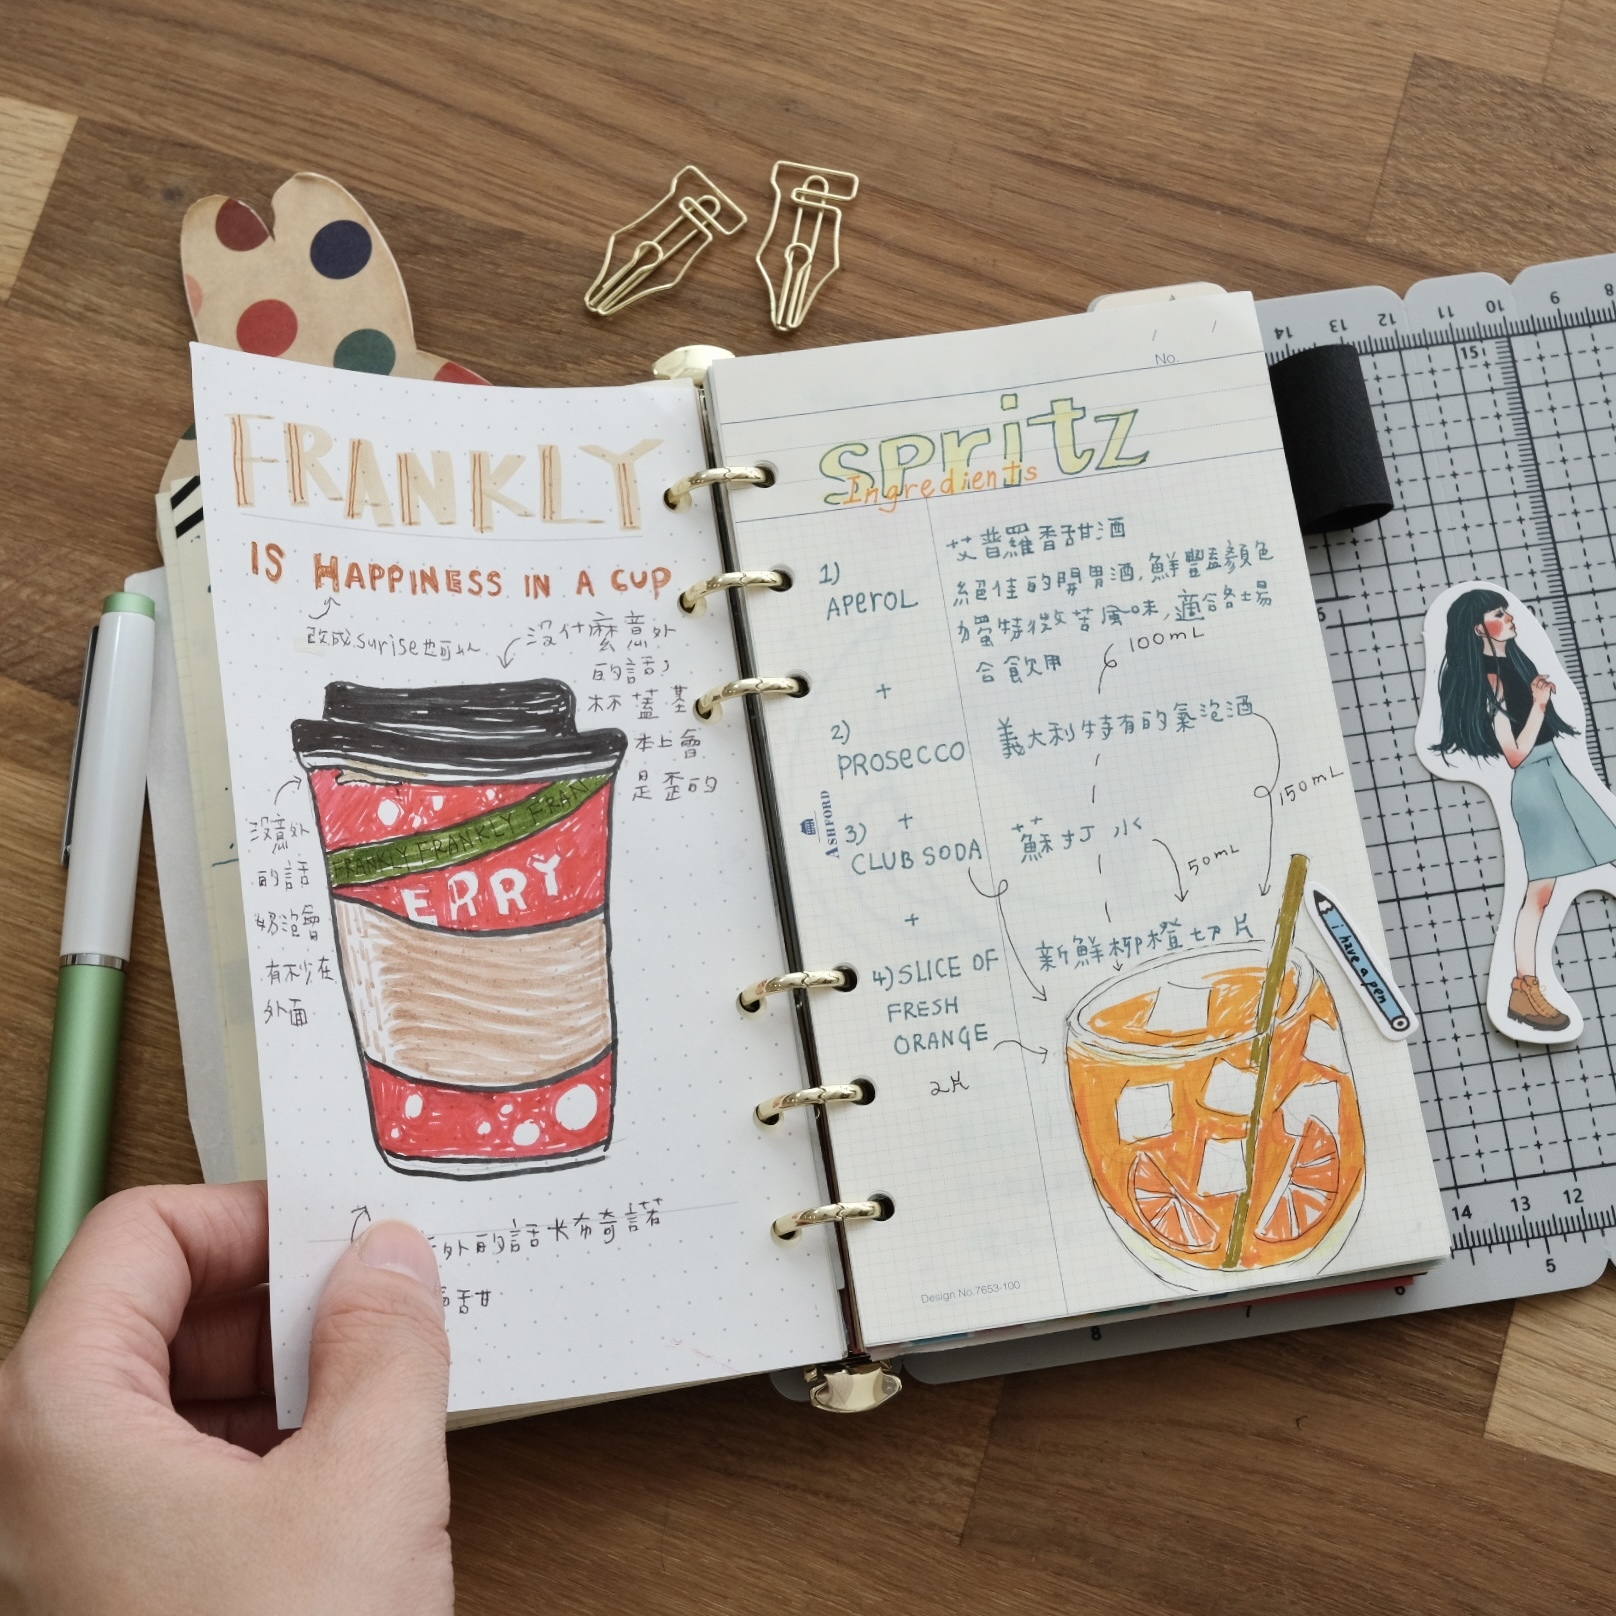 FRANKLY
IS HAPPINESS IN A CUP
改成surise也可以
沒什麼意外
的話
杯蓋基
本上會
是歪的
FRANKLY FRANKLY FRAN
ERRY
沒意外
的話
奶泡會
有不少在
外面
外的話卡布奇諾
甜
No.
spritz
Ingredients
1)
APEROL
艾普羅香甜酒
絕佳的開胃酒,鮮豔顏色
獨特微苦風味,適合各場
合飲用
100mL
+
2)
PROSECCO
義大利特有的氣泡酒
150mL
+
3)
CLUB SODA
蘇打水
50mL
+
4) SLICE OF
FRESH
ORANGE
新鮮柳橙切片
2片
ASHFORD
Design No.7653-100
i have a pen
14 13 12 11 10 9 8
15
14 13 12
5
6
7
8